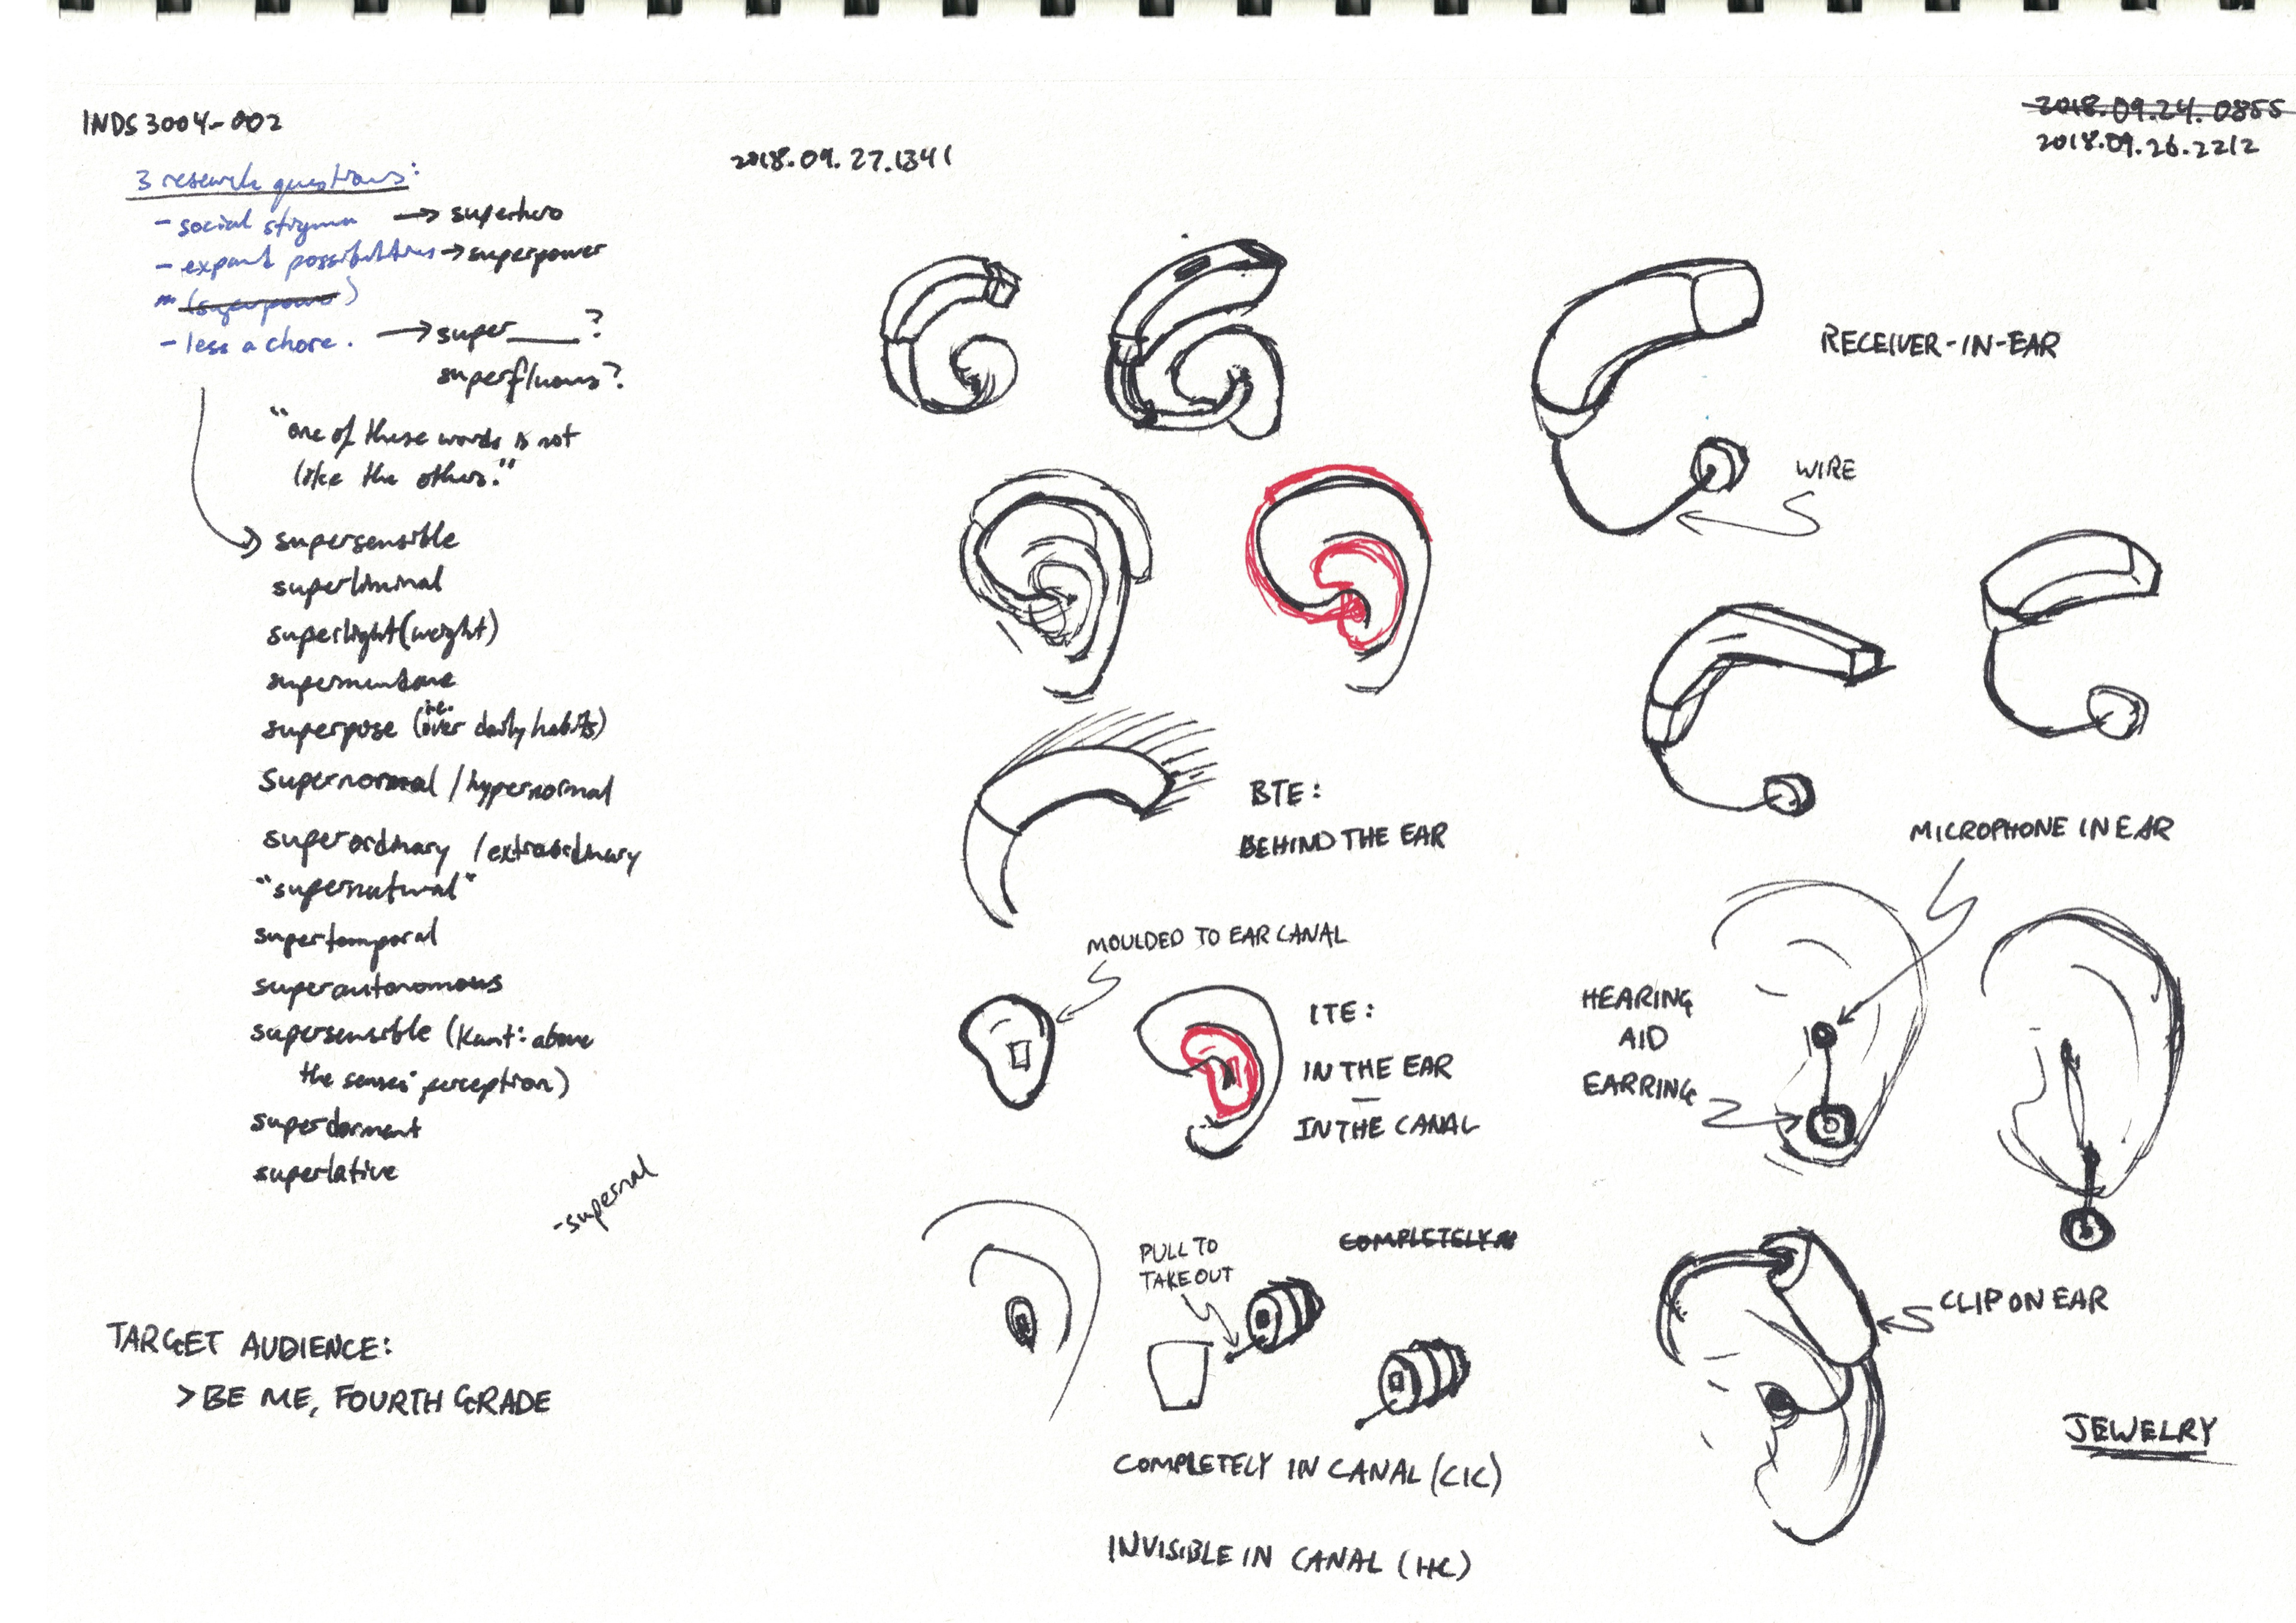 INDS3004-002
2018.09.24.0855
2018.09.26.2212
2018.09.27.1341
3 research questions:
- social stigma → superhero
- expand possibilities → superpower
(superpower)
- less a chore. → super____?
superfluous?
"one of these words is not
like the others."
supersensible
superliminal
superlight(weight)
supermundane
superpose (i.e. over daily habits)
supernormal / hypernormal
superordinary / extraordinary
"supernatural"
supertemporal
superautonomous
supersensible (Kant: above
the senses' perception)
superdormant
superlative
- supernal
TARGET AUDIENCE:
> BE ME, FOURTH GRADE
BTE:
BEHIND THE EAR
MOULDED TO EAR CANAL
ITE:
IN THE EAR
—
IN THE CANAL
PULL TO
TAKE OUT
COMPLETELY
COMPLETELY IN CANAL (CIC)
INVISIBLE IN CANAL (IIC)
RECEIVER-IN-EAR
WIRE
MICROPHONE IN EAR
HEARING
AID
EARRING
CLIP ON EAR
JEWELRY